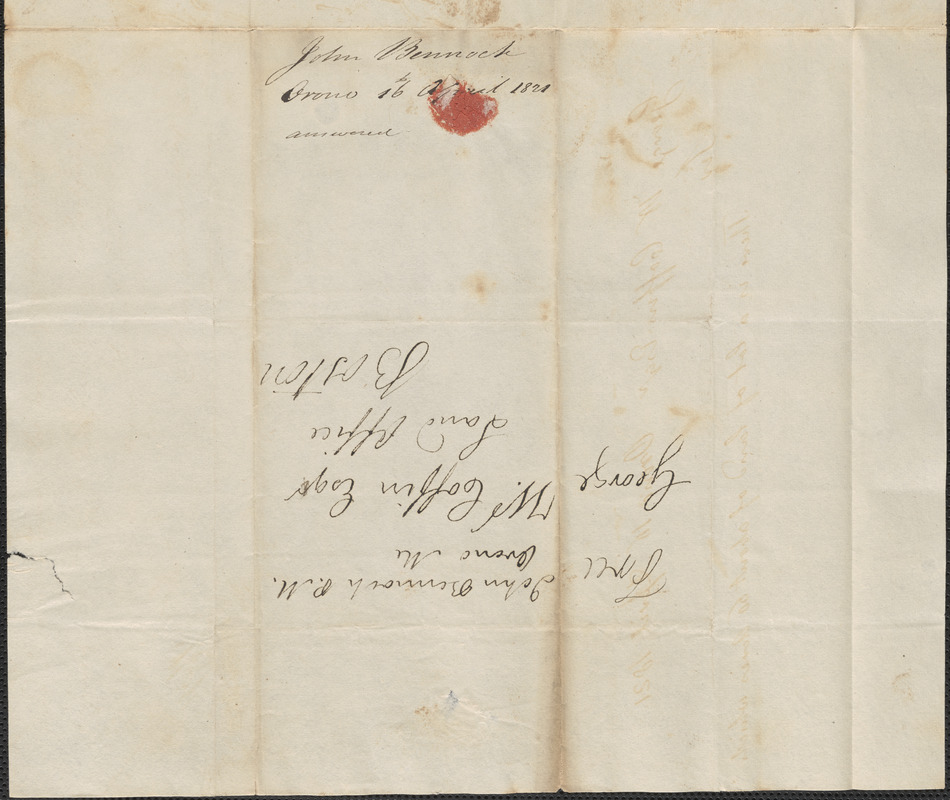 John Bennoch
Orono 16th April 1821
answered
Free
John Bennoch P.M.
Orono Me
George W. Coffin Esqr
Land Office
Boston